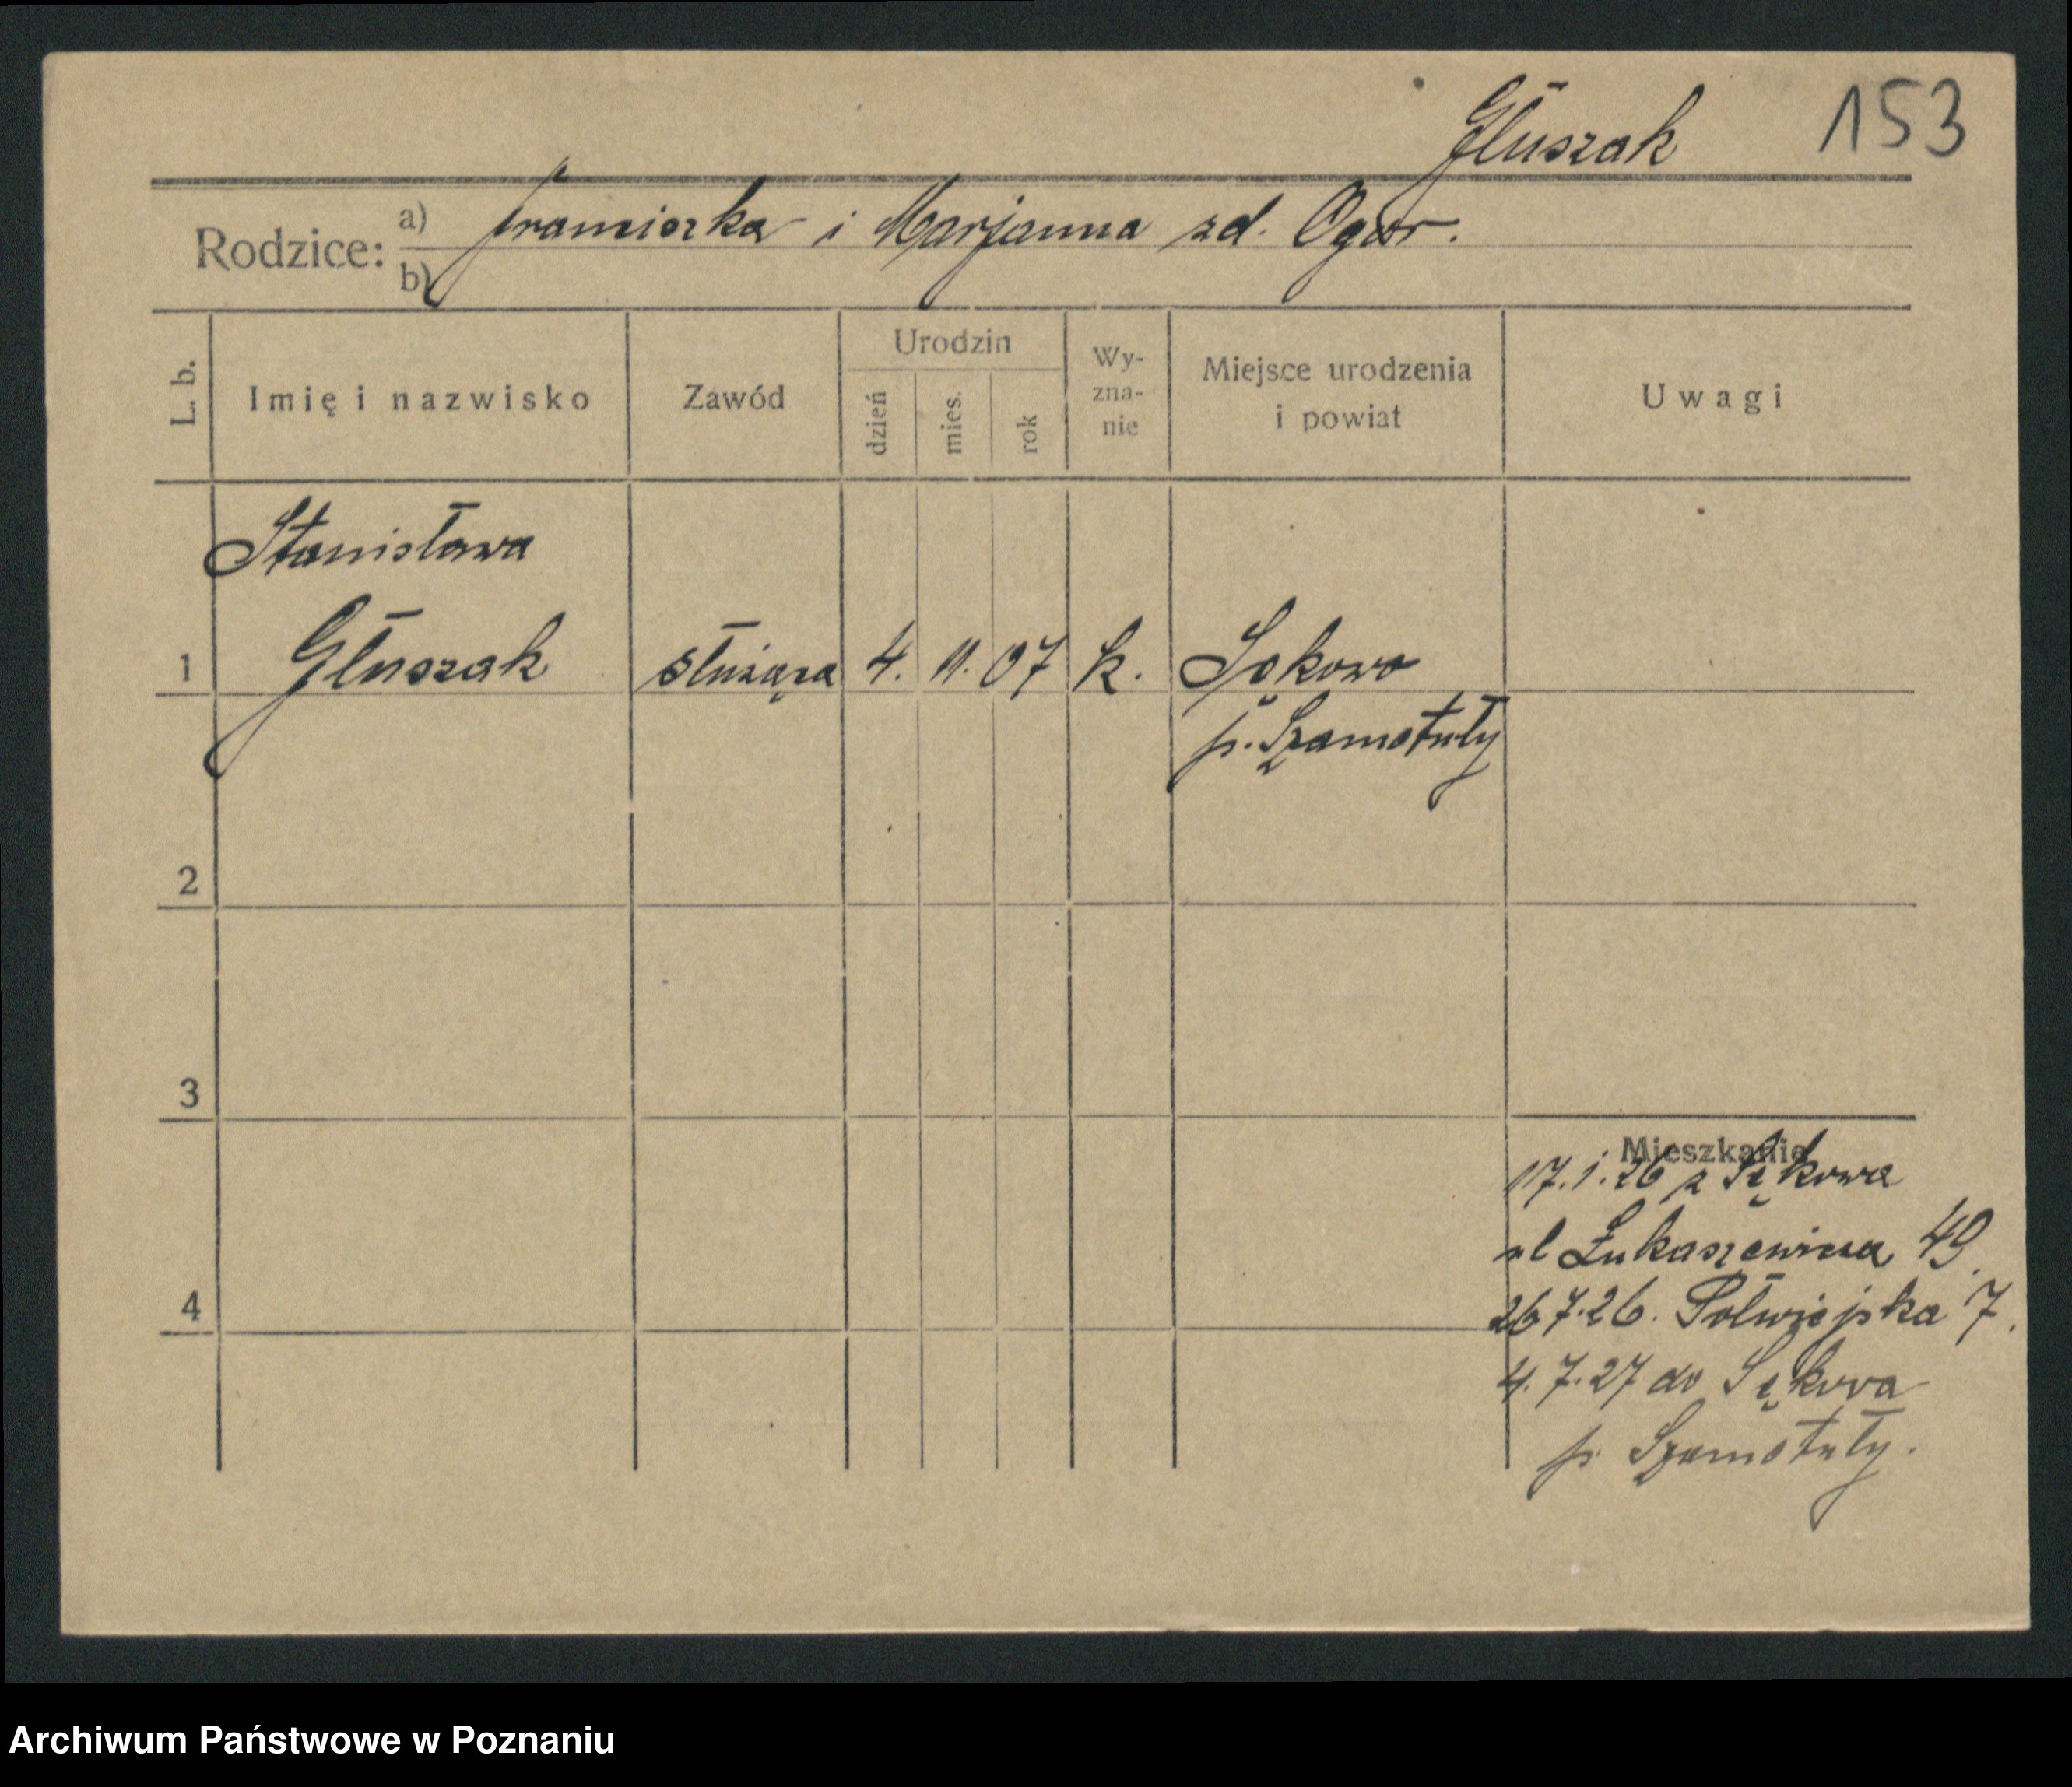 Głuszak 153
Rodzice: a) Franciszka i Marjanna zd. Ogór.
b)
L. b. Imię i nazwisko Zawód Urodzin dzień mies. rok Wy-zna-nie Miejsce urodzenia i powiat Uwagi
Stanisława
1 Głuszak służąca 4. 11. 07 k. Sękowo
p. Szamotuły
2
3
Mieszkanie
17.1.26 z Sękowa
ul Łukaszewicza 49.
4 26 7.26. Półwiejska 7.
4. 7.27 do Sękowa
p. Szamotuły.
Archiwum Państwowe w Poznaniu